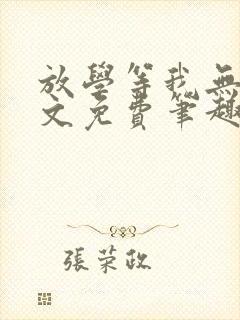 放學等我無
文免費筆趣
張榮政